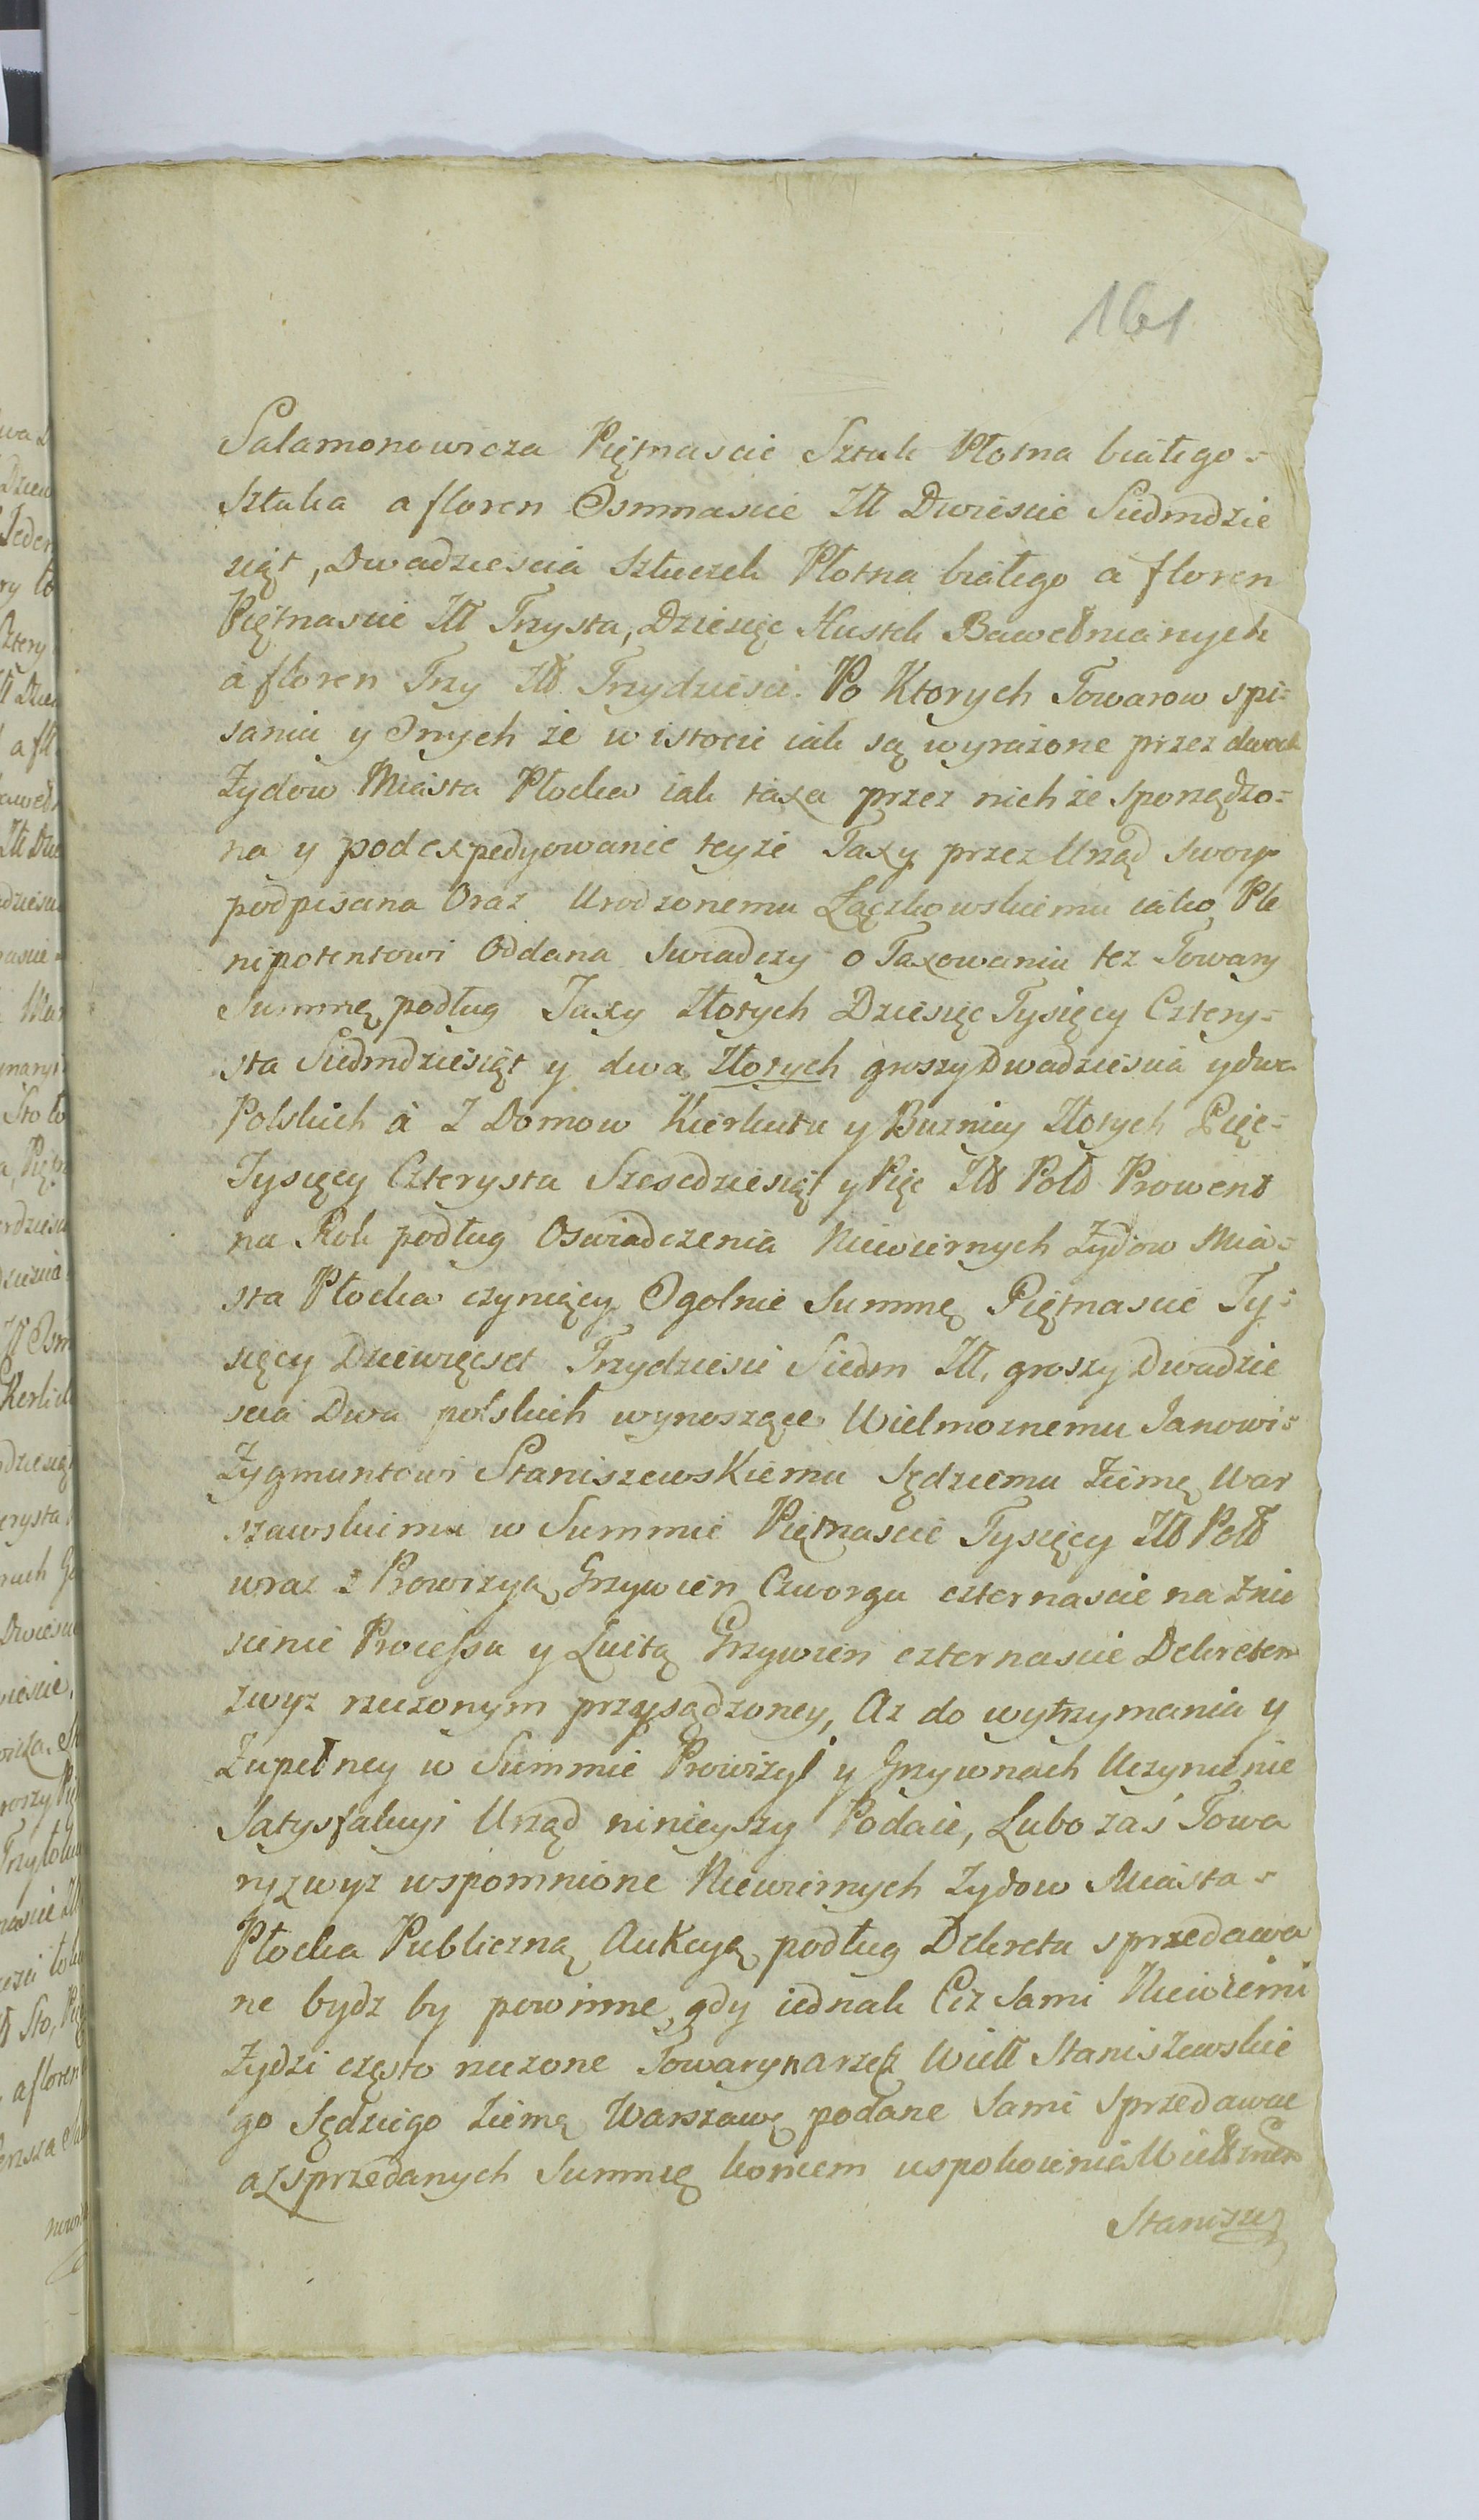 161
Salamonowicza Piętnascie Sztuk Płotna białego=
Sztuka a floren Osmnascie Złł Dwiescie Siedmdzie
siąt, Dwadziescia Sztuczek Płotna białego a floren
Piętnascie Złł Trzysta, Dziesięc Hustek Bawełnianych
á floren Trzy Złł Trzydziesci. Po Ktorych Towarow spi=
saniu y Onych że w istocie iak są wyrażone przez dwoch
Żydow Miasta Płocka iak taxa przez nich że sporządzo=
na y pod expedyowanie teyże Taxy przez Urząd swoy
podpisana Oraz Urodzonemu Łączkowskiemu iako Ple
nipotentowi Oddana Swiadczy o Taxowaniu tez Towary
Summę podług Taxy Złotych Dziesięc Tysięcy Cztery=
sta Siedmdziesiąt y dwa Złotych groszy Dwadziescia y dwa
Polskich á Z Domow Kierkutu y Buznicy Złotych Pięc=
Tysięcy Czterysta Szescdziesiąt y Pięc Złł Poll Prowent
na Rok podług Oswiadczenia Niewiernych Żydow Mia=
sta Płocka czyniący Ogolnie Summę Piętnascie Ty=
sięcy Dziewięcset Trzydziesci Siedm Złł, groszy Dwadzie
scia Dwa polskich wynoszące Wielmoznemu Janowi=
Zygmuntowi Staniszewskiemu Sędziemu Ziemę War
szawskiemu w Summie Piętnascie Tysięcy Złł Poll
wraz z Prowizyą Grzywien Czworga czternascie na znie
sienie Processu y Luitą Grzywien czternascie Dekretem
zwyz rzeczonym przysądzoney, Az do wytrzymania y
Zupełney w Summie Prowizyi y Grzywnach Uczynienie
Satysfakcyi Urząd ninieyszy Podaie, Lubo zaś Towa
ry zwyz wspomnione Niewiernych Zydow Miasta=
Płocka Publiczną Aukcyą podług Dekretu sprzedawa
ne bydz by powinne, gdy iednak Ciz Sami Niewierni
Żydzi często rzeczone Towary na rzecz Wiell Staniszewskie
go Sędziego Ziemę Warszawę podane Sami Sprzedawac
a z sprzedanych Summę koncem uspokoienia
Staniszew